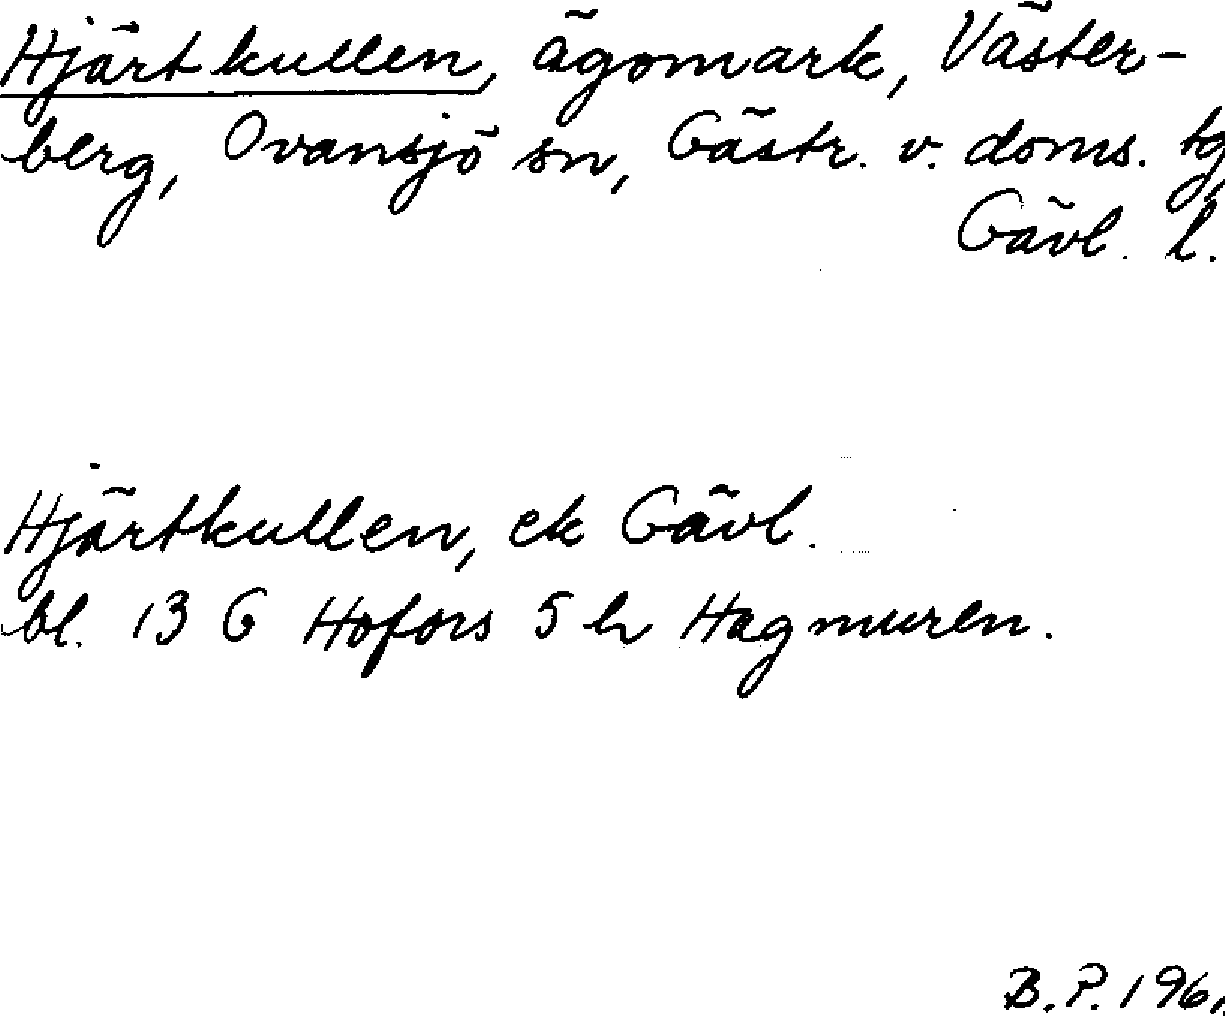 Hjärtkullen, ägomark, Väster-
berg, Ovansjö sn, Gästr. v. doms. tg
Gävl. l.
Hjärtkullen, ek Gävl.
bl. 13 G Hofors 5 h Hagmuren.
B. P. 196